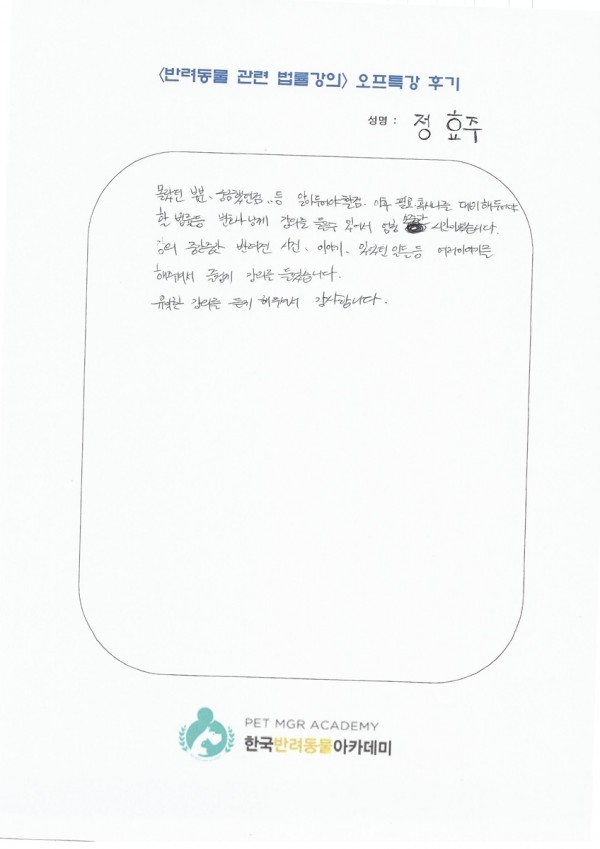 <반려동물 관련 법률강의> 오프특강 후기
성명 : 정 효주
몰랐던 부분, 등 알아두어야할점, 이후 필요 대비해두어야
할 법률등 강의를 들을수 있어서 시간이었습니다.
강의 중간중간 반려견 사건, 이야기, 있었던 일들등 여러이야기를
해주셔서 강의를 들었습니다.
유익한 강의를 듣게 해주셔서 감사합니다.
PET MGR ACADEMY
한국반려동물아카데미